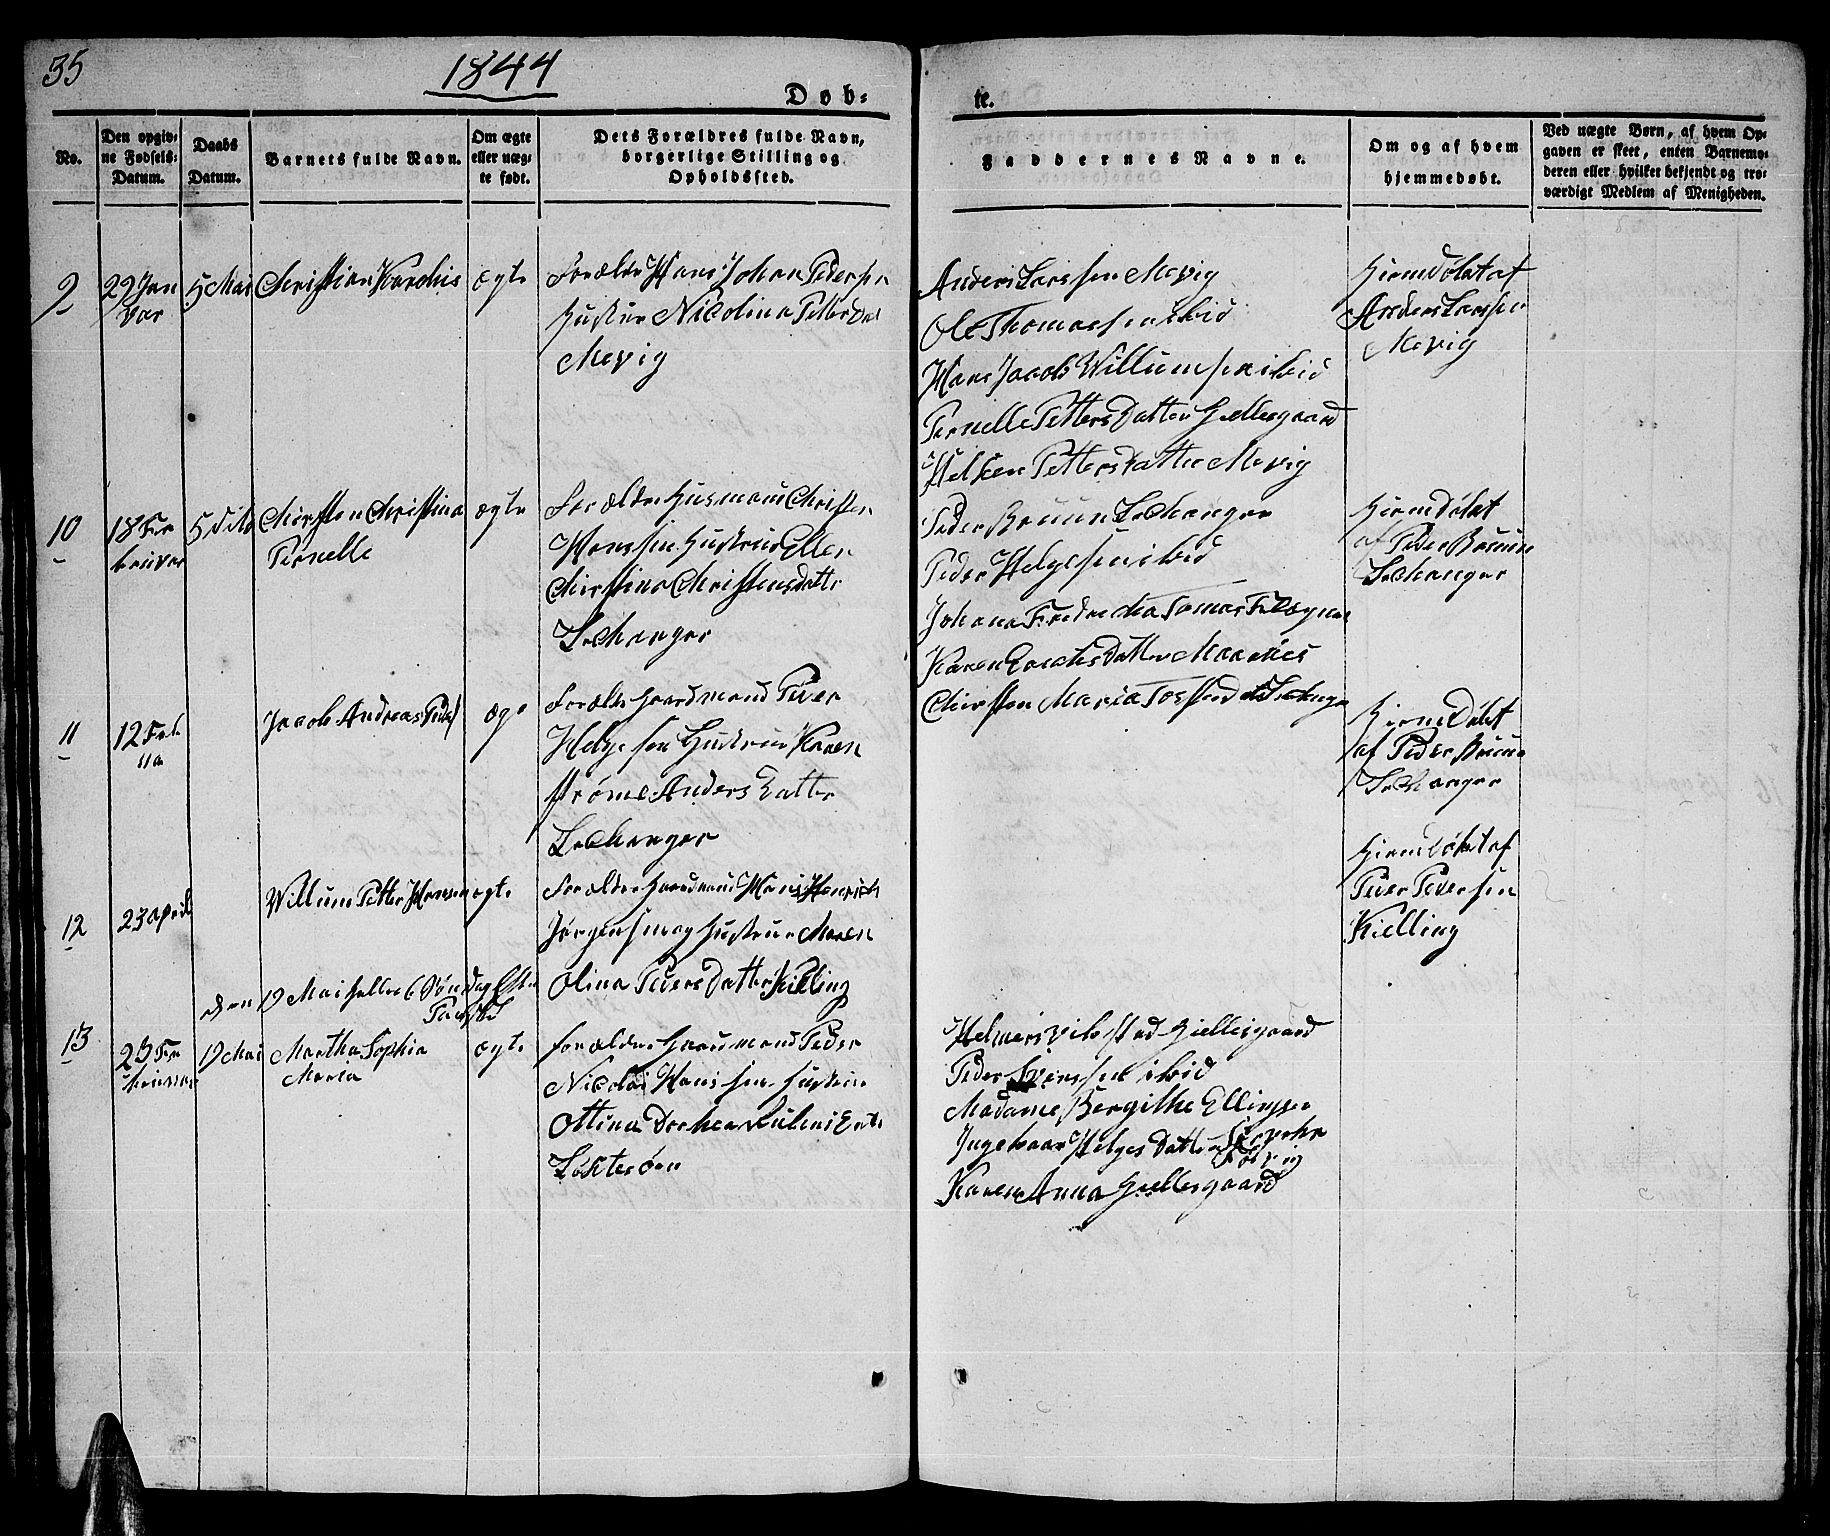 35
1844
Døb-
te.
No.
Den opgiv-
ne Fødsels-
Datum.
Daabs
Datum.
Barnets fulde Navn.
Om ægte
eller uæg-
te født.
Dets Forældres fulde Navn,
borgerlige Stilling og
Opholdssted.
Faddernes Navne.
Om og af hvem
hjemmedøbt.
Ved uægte Børn, af hvem Op-
gaven er skeet, enten Barnemo-
deren eller hvilket bekjendt og tro-
værdigt Medlem af Menigheden.
9
29 Jan
var
5 Mai
Christian Karolius
ægte
Forældre Hans Johan Pedersen
Hustru Nicolina Petter Dat
Mevig
Anders Larssen Mevig
Ole Thomassen ibid
Hans Jacob Willumsen ibid
Pernelle Petters Datter Giellesgaard
Petters Datter Mevig
Hiemdøbt af
Anders Larssen
Mevig
10
18 Fe
bruar
5 dito
Kirsten Christina
Pernelle
ægte
Forældre Husmand Christen
Hanssen Hustrue Ellen
Christina Christensdatter
Sechanger
Peder Bruun Sechanger
Peder Helgesen ibid
Johana
Karen
Kirsten Maria
Hiemdøbt
af Peder Bruun
Sechanger
11
12 Feb
Jacob Andreas Peders
ægte
Forældre Gaardmand Peder
Helgesen Hustrue Karen
Anders Datter
Sechanger
Hiemdøbt
af Peder Bruun
Sechanger
12
23 April
Willum Petter Hansen
ægte
Forældre Gaardmand Hans Henrich
Jørgensen og Hustrue Maren
Olina Peders Datter Kielling
Hiemdøbt af
Peder Pedersen
Kielling
den 19 Mai heller 6 Søndag Efter
Paaske
13
23 Fe
bruar
19 Mai
Martha Sophia
Maria
ægte
Forældre Gaardmand Peder
Nicolai Hanssen Hustrue
Ottina Dorthea
Løkterøen
Giellesgaard
Peder Iverssen ibid
Madame Bergithe Ellingsen
Ingeboar Helges Datter
Karen Anna Giellesgaard